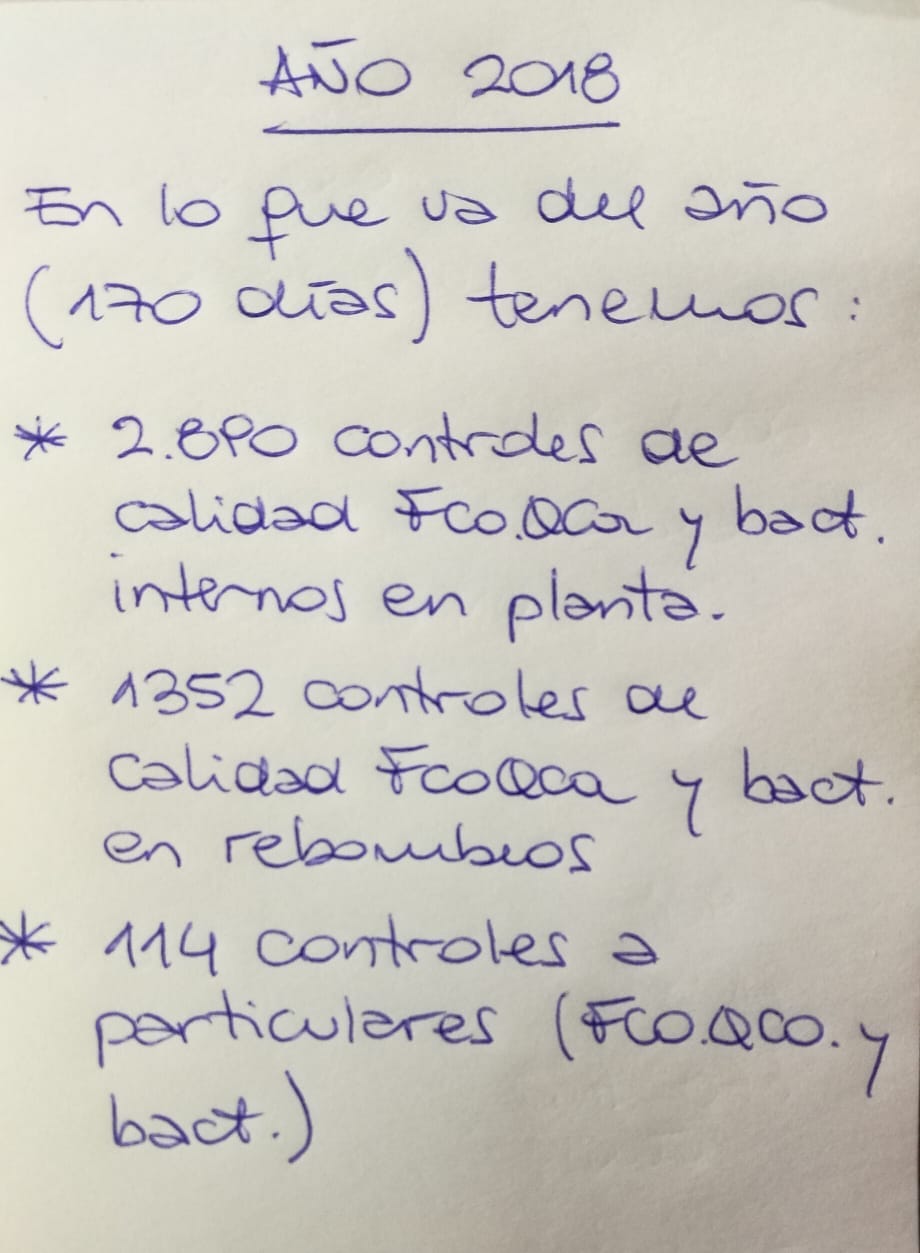 AÑO 2018
En lo que va del año
(170 días) tenemos:
* 2.890 controles de
calidad Fco.QCa y bact.
internos en planta.
* 1352 controles de
calidad FcoQca y bact.
en rebombeos
* 114 controles a
particulares (FCO.QCO. y
bact.)